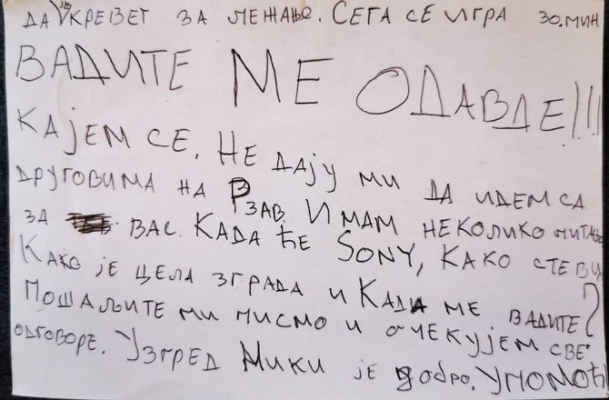 ДА ЈЕ КРЕВЕТ ЗА ЛЕЖАЊЕ. СЕГА СЕ ИГРА 30. МИН
ВАДИТЕ МЕ ОДАВДЕ!!!
КАЈЕМ СЕ. НЕ ДАЈУ МИ ДА ИДЕМ СА
ДРУГОВИМА НА РЗАВ. ИМАМ НЕКОЛИКО ПИТАЊА
ЗА ВАС. КАДА ЋЕ SONY, КАКО СТЕ ВИ
КАКО ЈЕ ЦЕЛА ЗГРАДА И КАДА МЕ ВАДИТЕ?
ПОШАЉИТЕ МИ ПИСМО И ОЧЕКУЈЕМ СВЕ
ОДГОВОРЕ. УЗГРЕД МИКИ ЈЕ ДОБРО. УПОМОЋ